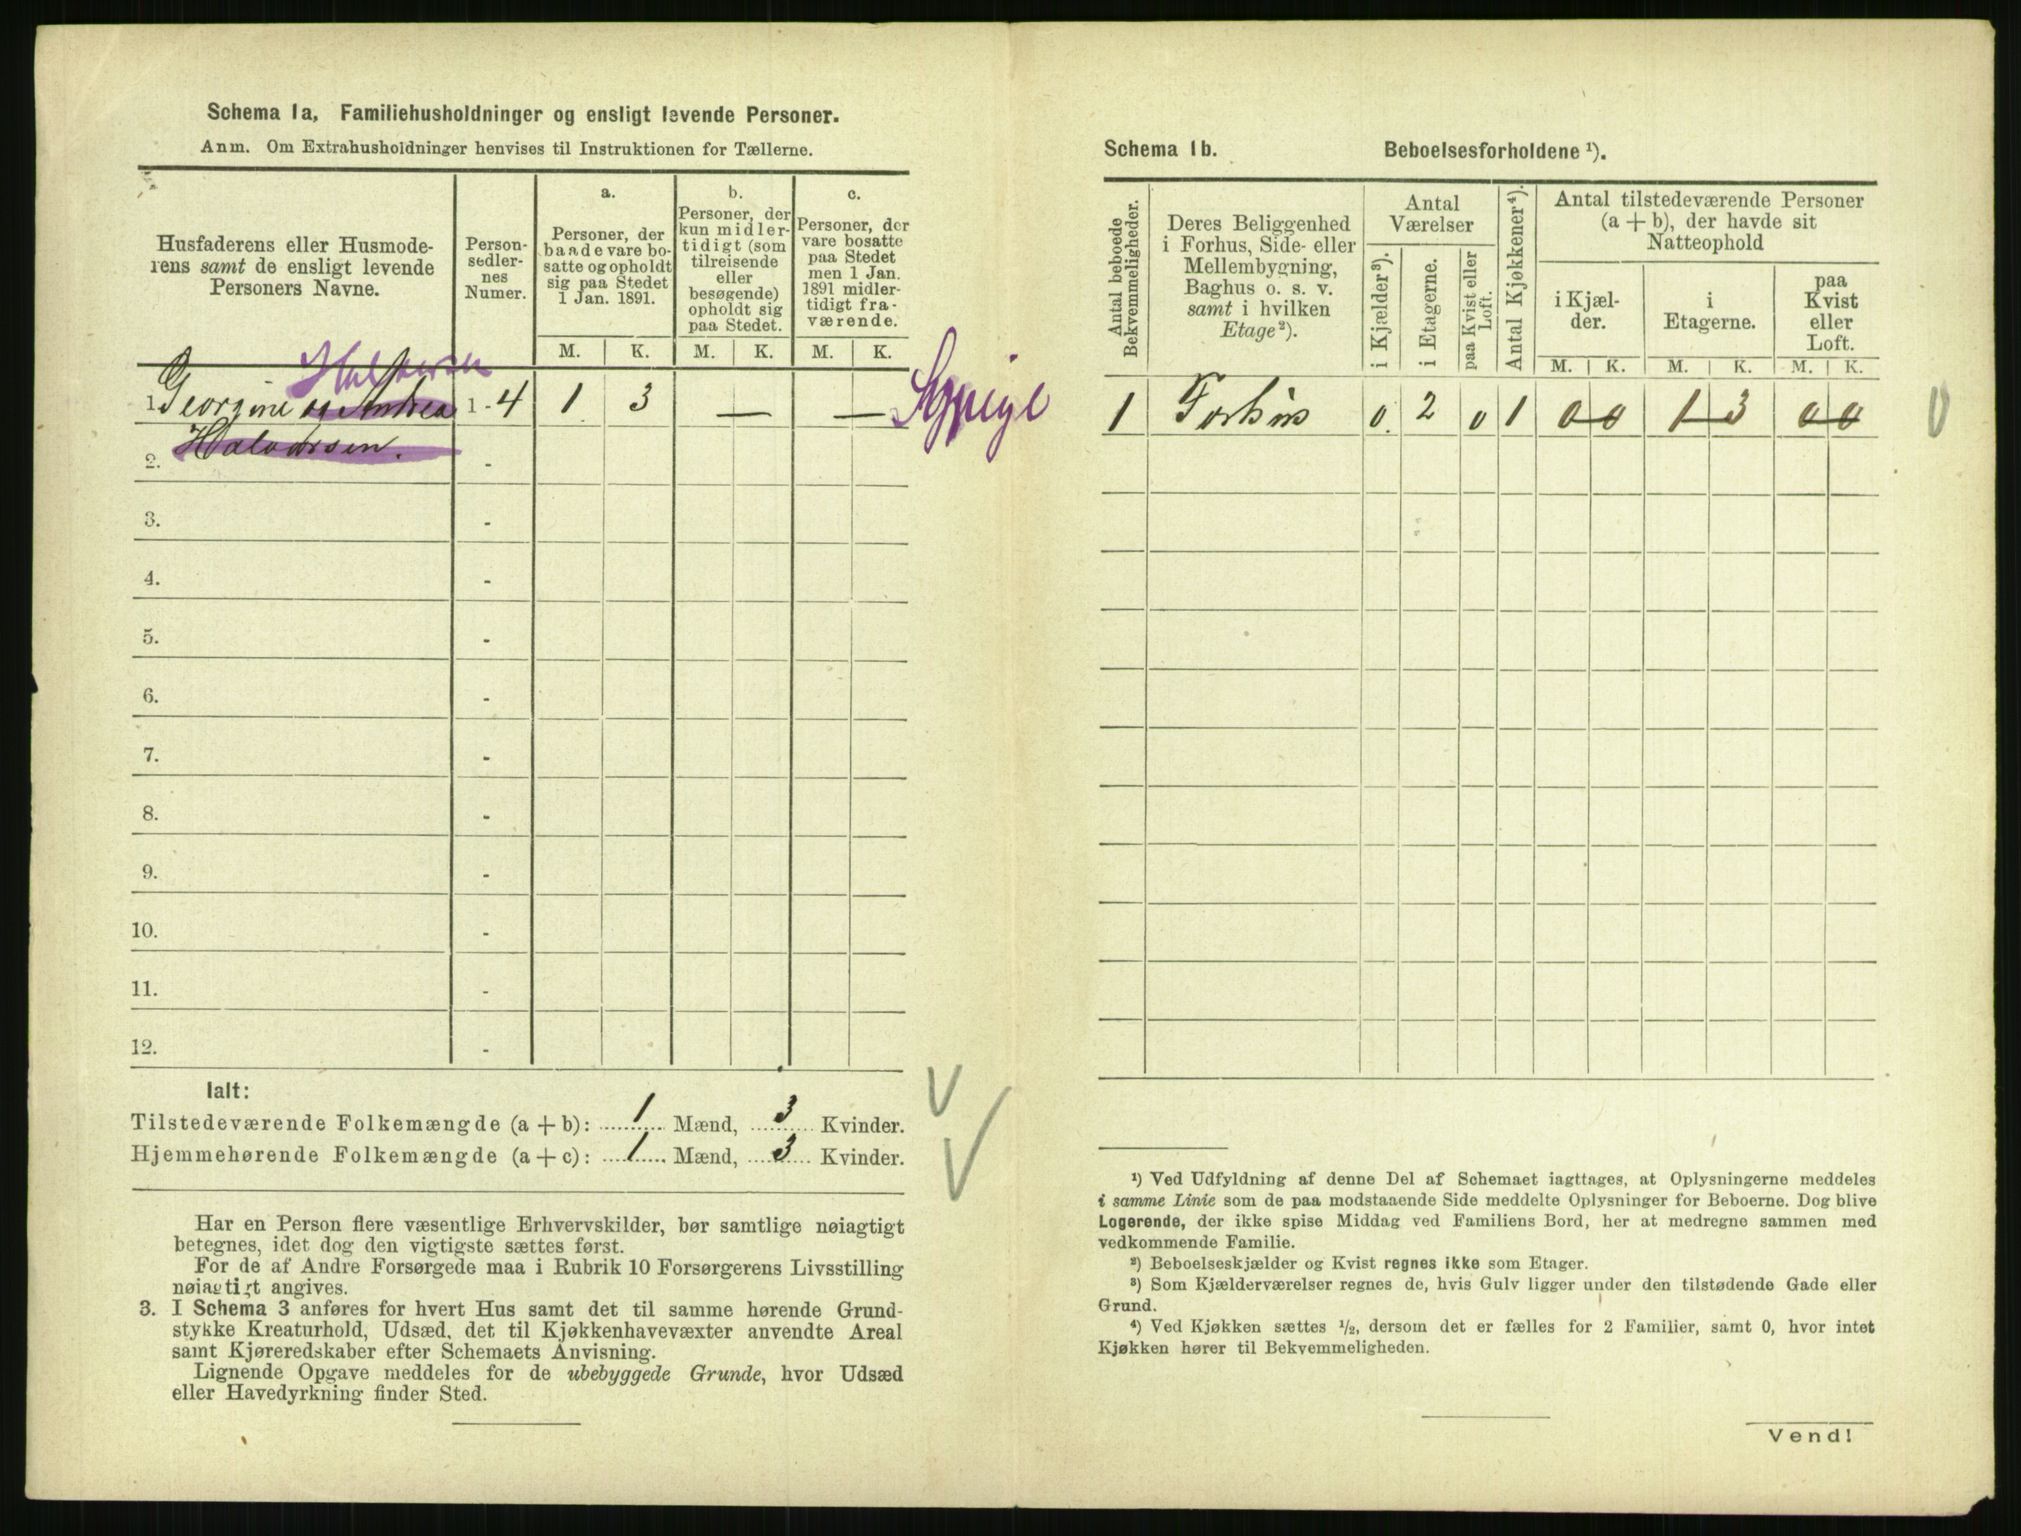 Schema 1a, Familiehusholdninger og ensligt levende Personer.
Anm. Om Extrahusholdninger henvises til Instruktionen for Tællerne.
Husfaderens eller Husmode-
rens samt de ensligt levende
Personers Navne.
Person-
sedler-
nes
Numer.
a.
Personer, der
baade vare bo-
satte og opholdt
sig paa Stedet
1 Jan. 1891.
b.
Personer, der
kun midler-
tidigt (som
tilreisende
eller
besøgende)
opholdt sig
paa Stedet.
c.
Personer, der
vare bosatte
paa Stedet
men 1 Jan.
1891 midler-
tidigt fra-
værende.
M. K. M. K. M. K.
1. Georgine og Andrea 1 - 4 1 3 — —
2. Halvorsen. -
3. -
4. -
5. -
6. -
7. -
8. -
9. -
10. -
11. -
12. -
Ialt:
Tilstedeværende Folkemængde (a + b): 1 Mænd, 3 Kvinder.
Hjemmehørende Folkemængde (a + c): 1 Mænd, 3 Kvinder.
Har en Person flere væsentlige Erhvervskilder, bør samtlige nøiagtigt
betegnes, idet dog den vigtigste sættes først.
For de af Andre Forsørgede maa i Rubrik 10 Forsørgerens Livsstilling
nøiagtigt angives.
3. I Schema 3 anføres for hvert Hus samt det til samme hørende Grund-
stykke Kreaturhold, Udsæd, det til Kjøkkenhavevæxter anvendte Areal
samt Kjøreredskaber efter Schemaets Anvisning.
Lignende Opgave meddeles for de ubebyggede Grunde, hvor Udsæd
eller Havedyrkning finder Sted.
Schema 1b. Beboelsesforholdene ¹).
Antal beboede
Bekvemmeligheder.
Deres Beliggenhed
i Forhus, Side- eller
Mellembygning,
Baghus o. s. v.
samt i hvilken
Etage ²).
Antal
Værelser
i Kjælder ³).
i Etagerne.
paa Kvist eller
Loft.
Antal Kjøkkener ⁴).
Antal tilstedeværende Personer
(a + b), der havde sit
Natteophold
i Kjæl-
der.
i
Etagerne.
paa
Kvist
eller
Loft.
M. K. M. K. M. K.
1 Forhus 0 2 0 1 0 0 1 3 0 0
¹) Ved Udfyldning af denne Del af Schemaet iagttages, at Oplysningerne meddeles
i samme Linie som de paa modstaaende Side meddelte Oplysninger for Beboerne. Dog blive
Logerende, der ikke spise Middag ved Familiens Bord, her at medregne sammen med
vedkommende Familie.
²) Beboelseskjælder og Kvist regnes ikke som Etager.
³) Som Kjælderværelser regnes de, hvis Gulv ligger under den tilstødende Gade eller
Grund.
⁴) Ved Kjøkken sættes ½, dersom det er fælles for 2 Familier, samt 0, hvor intet
Kjøkken hører til Bekvemmeligheden.
Vend!